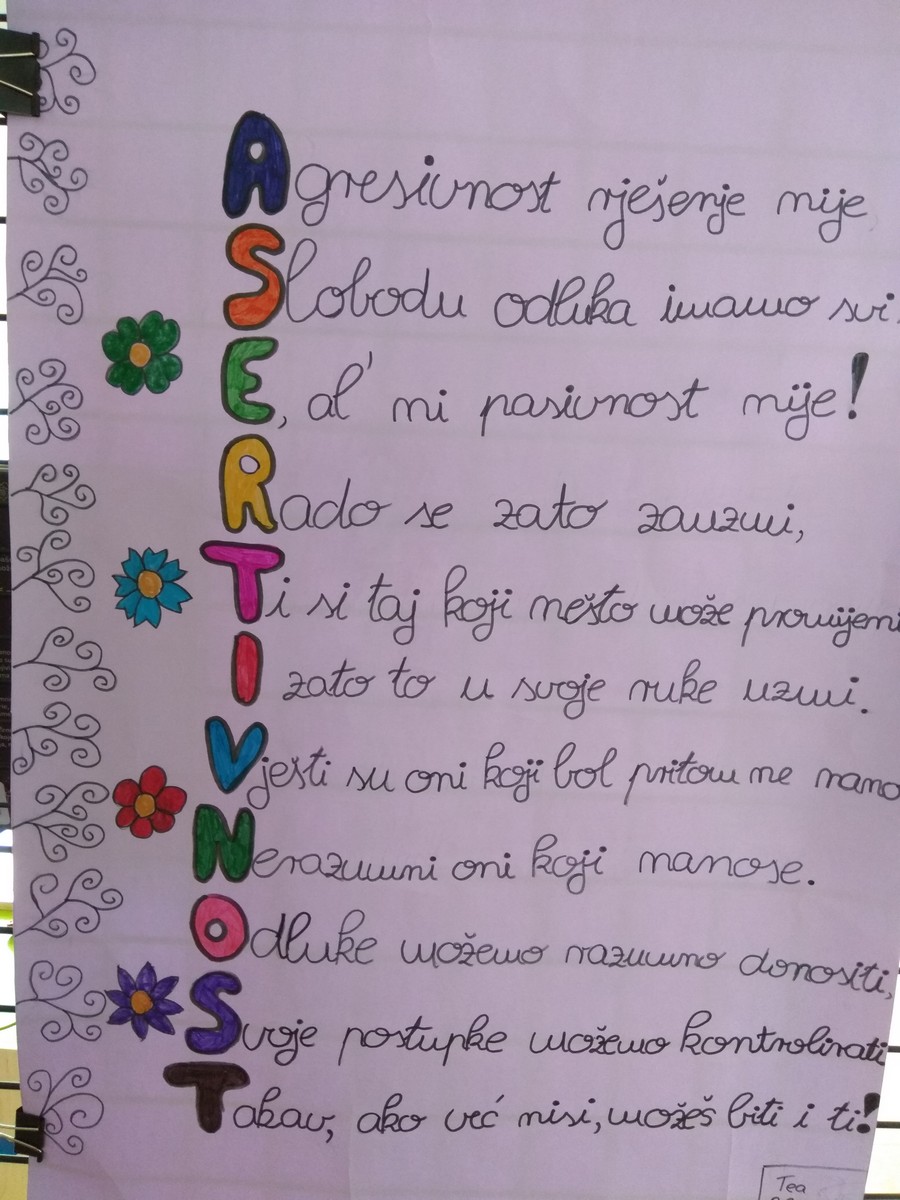 Agresivnost rješenje nije
Slobodu odluka imamo svi.
E, al' ni pasivnost nije!
Rado se zato zauzmi,
Ti si taj koji nešto može promijeni
I zato to u svoje ruke uzmi.
Vješti su oni koji bol pritom ne nano
Nerazumni oni koji nanose.
Odluke možemo razumno donositi,
Svoje postupke možemo kontrolirati
Takav, ako već nisi, možeš biti i ti!
Tea